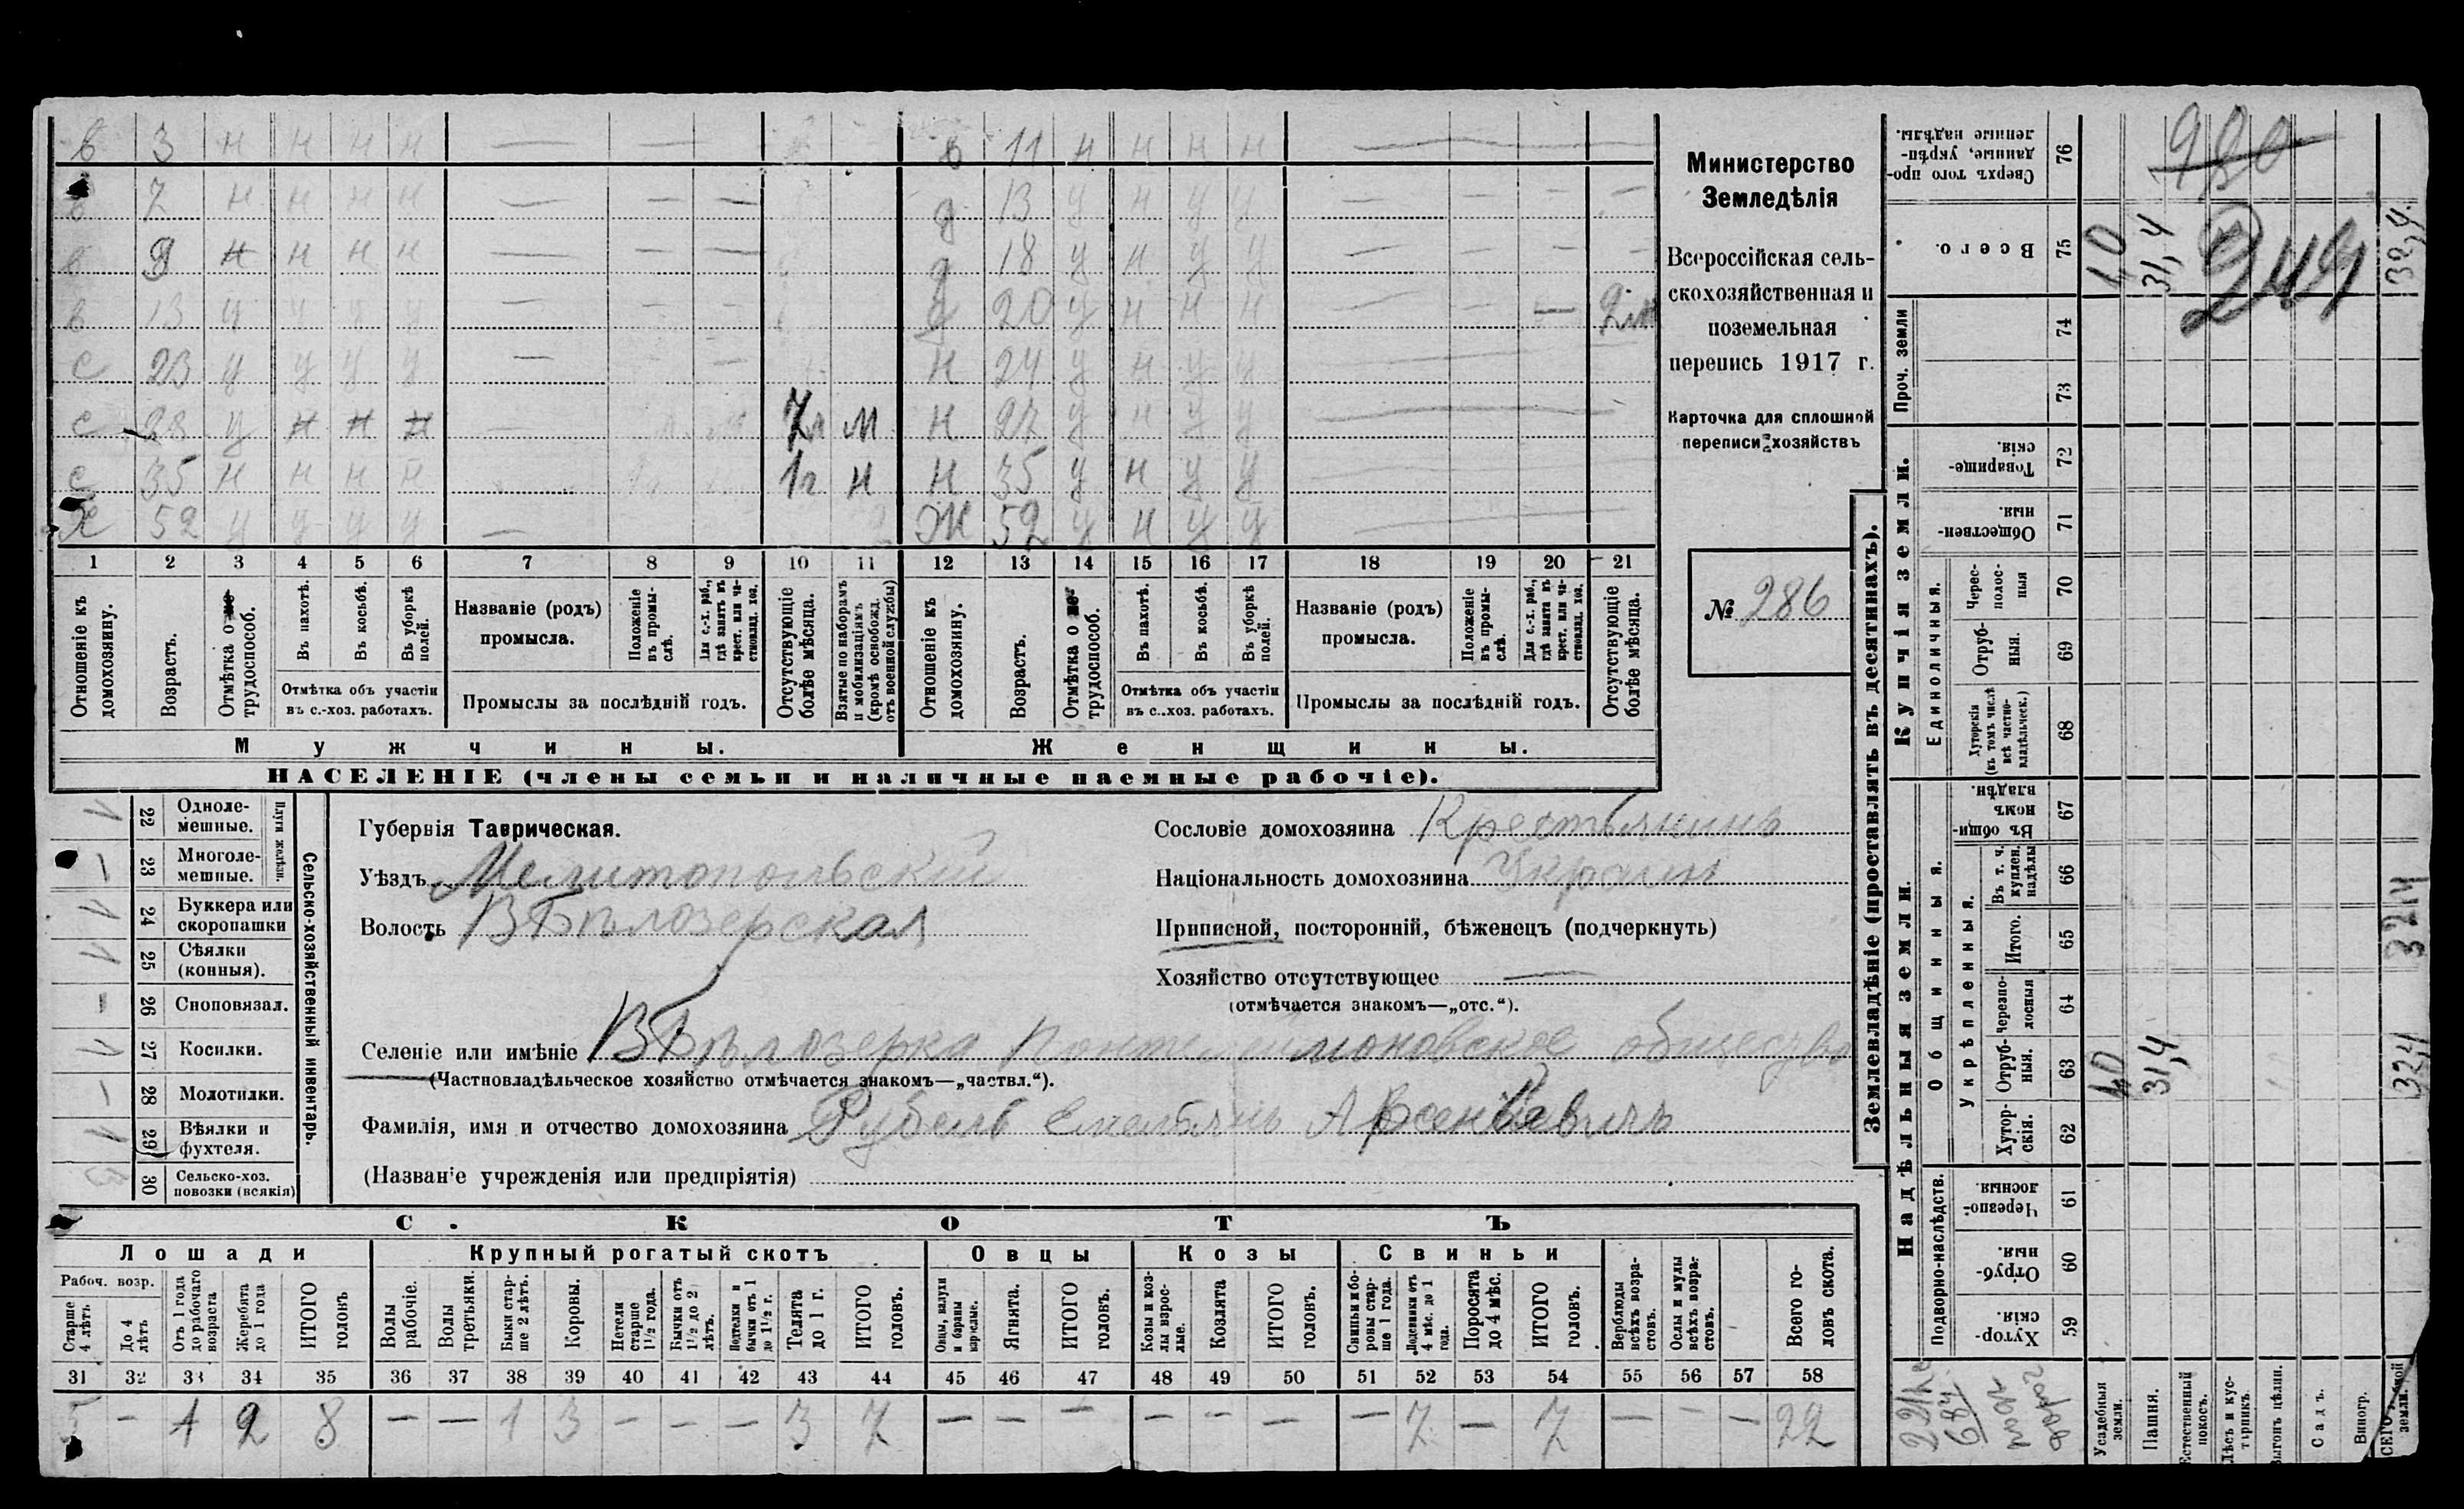 в 3 н н н н — — в 11 н н н н —
в 7 н н н н — — — д 13 у н у у — — — —
в 9 н н н н — — — д 18 у н у у — — — —
в 13 у у у у — — — д 20 у н н н — — — 2м
с 23 у у у у — — н 24 у н у у —
с 28 у н н н — 7л м н 27 у н у у —
с 35 н н н н 1г н н 35 у н у у —
х 52 у у у у — Ж 52 у н у у —
1 2 3 4 5 6 7 8 9 10 11 12 13 14 15 16 17 18 19 20 21
Отношеніе къ домохозяину.
Возрастъ.
Отмѣтка о не трудоспособ.
Въ пахотѣ.
Въ косьбѣ.
Въ уборкѣ полей.
Отмѣтка объ участіи въ с.-хоз. работахъ.
Названіе (родъ) промысла.
Положеніе въ промы-слѣ.
Для с.-х. раб., гдѣ занятъ въ крест. или ча-стновлад. хоз.
Промыслы за послѣдній годъ.
Отсутствующіе болѣе мѣсяца.
Взятые по наборамъ и мобилизаціямъ (кромѣ освобожд. отъ военной службы)
Отношеніе къ домохозяину.
Возрастъ.
Отмѣтка о не трудоспособ.
Въ пахотѣ.
Въ косьбѣ.
Въ уборкѣ полей.
Отмѣтка объ участіи въ с..хоз. работахъ.
Названіе (родъ) промысла.
Положеніе въ промы-слѣ.
Для с.-х. раб., гдѣ занята въ крест. или ча-стновлад. хоз.
Промыслы за послѣдній годъ.
Отсутствующіе болѣе мѣсяца.
Мужчины.
Женщины.
НАСЕЛЕНІЕ (члены семьи и наличные наемные рабочіе).
Министерство
Земледѣлія
Всероссійская сель-
скохозяйственная и
поземельная
перепись 1917 г.
Карточка для сплошной
переписи хозяйствъ
№ 286
Сельско-хозяйственный инвентарь.
Плуги желѣзн.
22 Одноле-мешные. 1
23 Многоле-мешные. —
24 Буккера или скоропашки 1
25 Сѣялки (конныя). 1
26 Сноповязал. —
27 Косилки. 1
28 Молотилки. —
29 Вѣялки и фухтеля. 1
30 Сельско-хоз. повозки (всякія) 3
Губернія Таврическая.
Уѣздъ Мелитопольскій
Волость ВБѣлозерская
Сословіе домохозяина Крестьянинъ
Національность домохозяина Украин
Приписной, посторонній, бѣженецъ (подчеркнуть)
Хозяйство отсутствующее —
(отмѣчается знакомъ—„отс.“).
Селеніе или имѣніе ВБѣлозерка Понтелиймоновское общество
(Частновладѣльческое хозяйство отмѣчается знакомъ—„частвл.“).
Фамилія, имя и отчество домохозяина Рубель Емельянъ Арсентьевичъ
(Названіе учрежденія или предпріятія)
СКОТЪ
Лошади
Крупный рогатый скотъ
Овцы
Козы
Свиньи
Рабоч. возр.
Старше 4 лѣтъ
До 4 лѣтъ
Отъ 1 года до рабочаго возраста
Жеребята до 1 года
ИТОГО головъ
Волы рабочіе.
Волы третьяки.
Быки стар-ше 2 лѣтъ.
Коровы.
Нетели старше 1½ года.
Бычки отъ 1½ до 2 лѣтъ.
Подтелки и бычки отъ 1 до 1½ г.
Телята до 1 г.
ИТОГО головъ.
Овцы, валухи и бараны взрослые.
Ягнята.
ИТОГО головъ.
Козы и коз-лы взрос-лые.
Козлята
ИТОГО головъ.
Свиньи и бо-ровы стар-ше 1 года.
Подсвинки отъ 4 мѣс. до 1 года.
Поросята до 4 мѣс.
ИТОГО головъ.
Верблюды всѣхъ возра-стовъ.
Ослы и мулы всѣхъ возра-стовъ.
Всего го-ловъ скота.
31 32 33 34 35 36 37 38 39 40 41 42 43 44 45 46 47 48 49 50 51 52 53 54 55 56 57 58
5 — 1 2 8 — — 1 3 — — — 3 7 — — — — — — — 7 — 7 — — — 22
Землевладѣніе (проставлять въ десятинахъ).
Надѣльныя земли.
Купчія земли.
Проч. земли
Подворно-наслѣдств.
Общинныя.
Укрѣпленныя.
Единоличныя.
59 Хутор-скія.
60 Отруб-ныя.
61 Черезпо-лосныя.
62 Хутор-скія.
63 Отруб-ныя.
64 Черезпо-лосныя
65 Итого.
66 Въ т. ч. куплен. надѣлы
67 Въ общи-номъ владѣн.
68 Хуторскія (въ томъ числѣ всѣ частно-владѣльческ.)
69 Отруб-ныя.
70 Черес-полос-ныя
71 Обществен-ныя.
72 Товарище-скія.
73
74
75 Всего.
76 Сверхъ того про-данные, укрѣп-ленные надѣлы.
Усадебныя земли. 1,0 1,0
Пашня. 31,4 31,4
Естественный покосъ.
Лѣсъ и кус-тарникъ.
Выгонъ цѣлин.
Садъ.
Виногр.
земли. 32,4 32,4 32,4
980
249